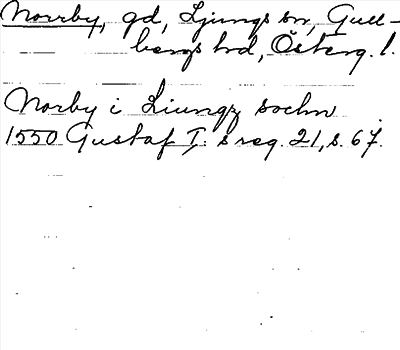 Norrby, gd, Ljungs sn, Gull-
bergs hd, Österg. l.
Norby i Liungz sochn
1550 Gustaf I:s reg. 21, s. 67.